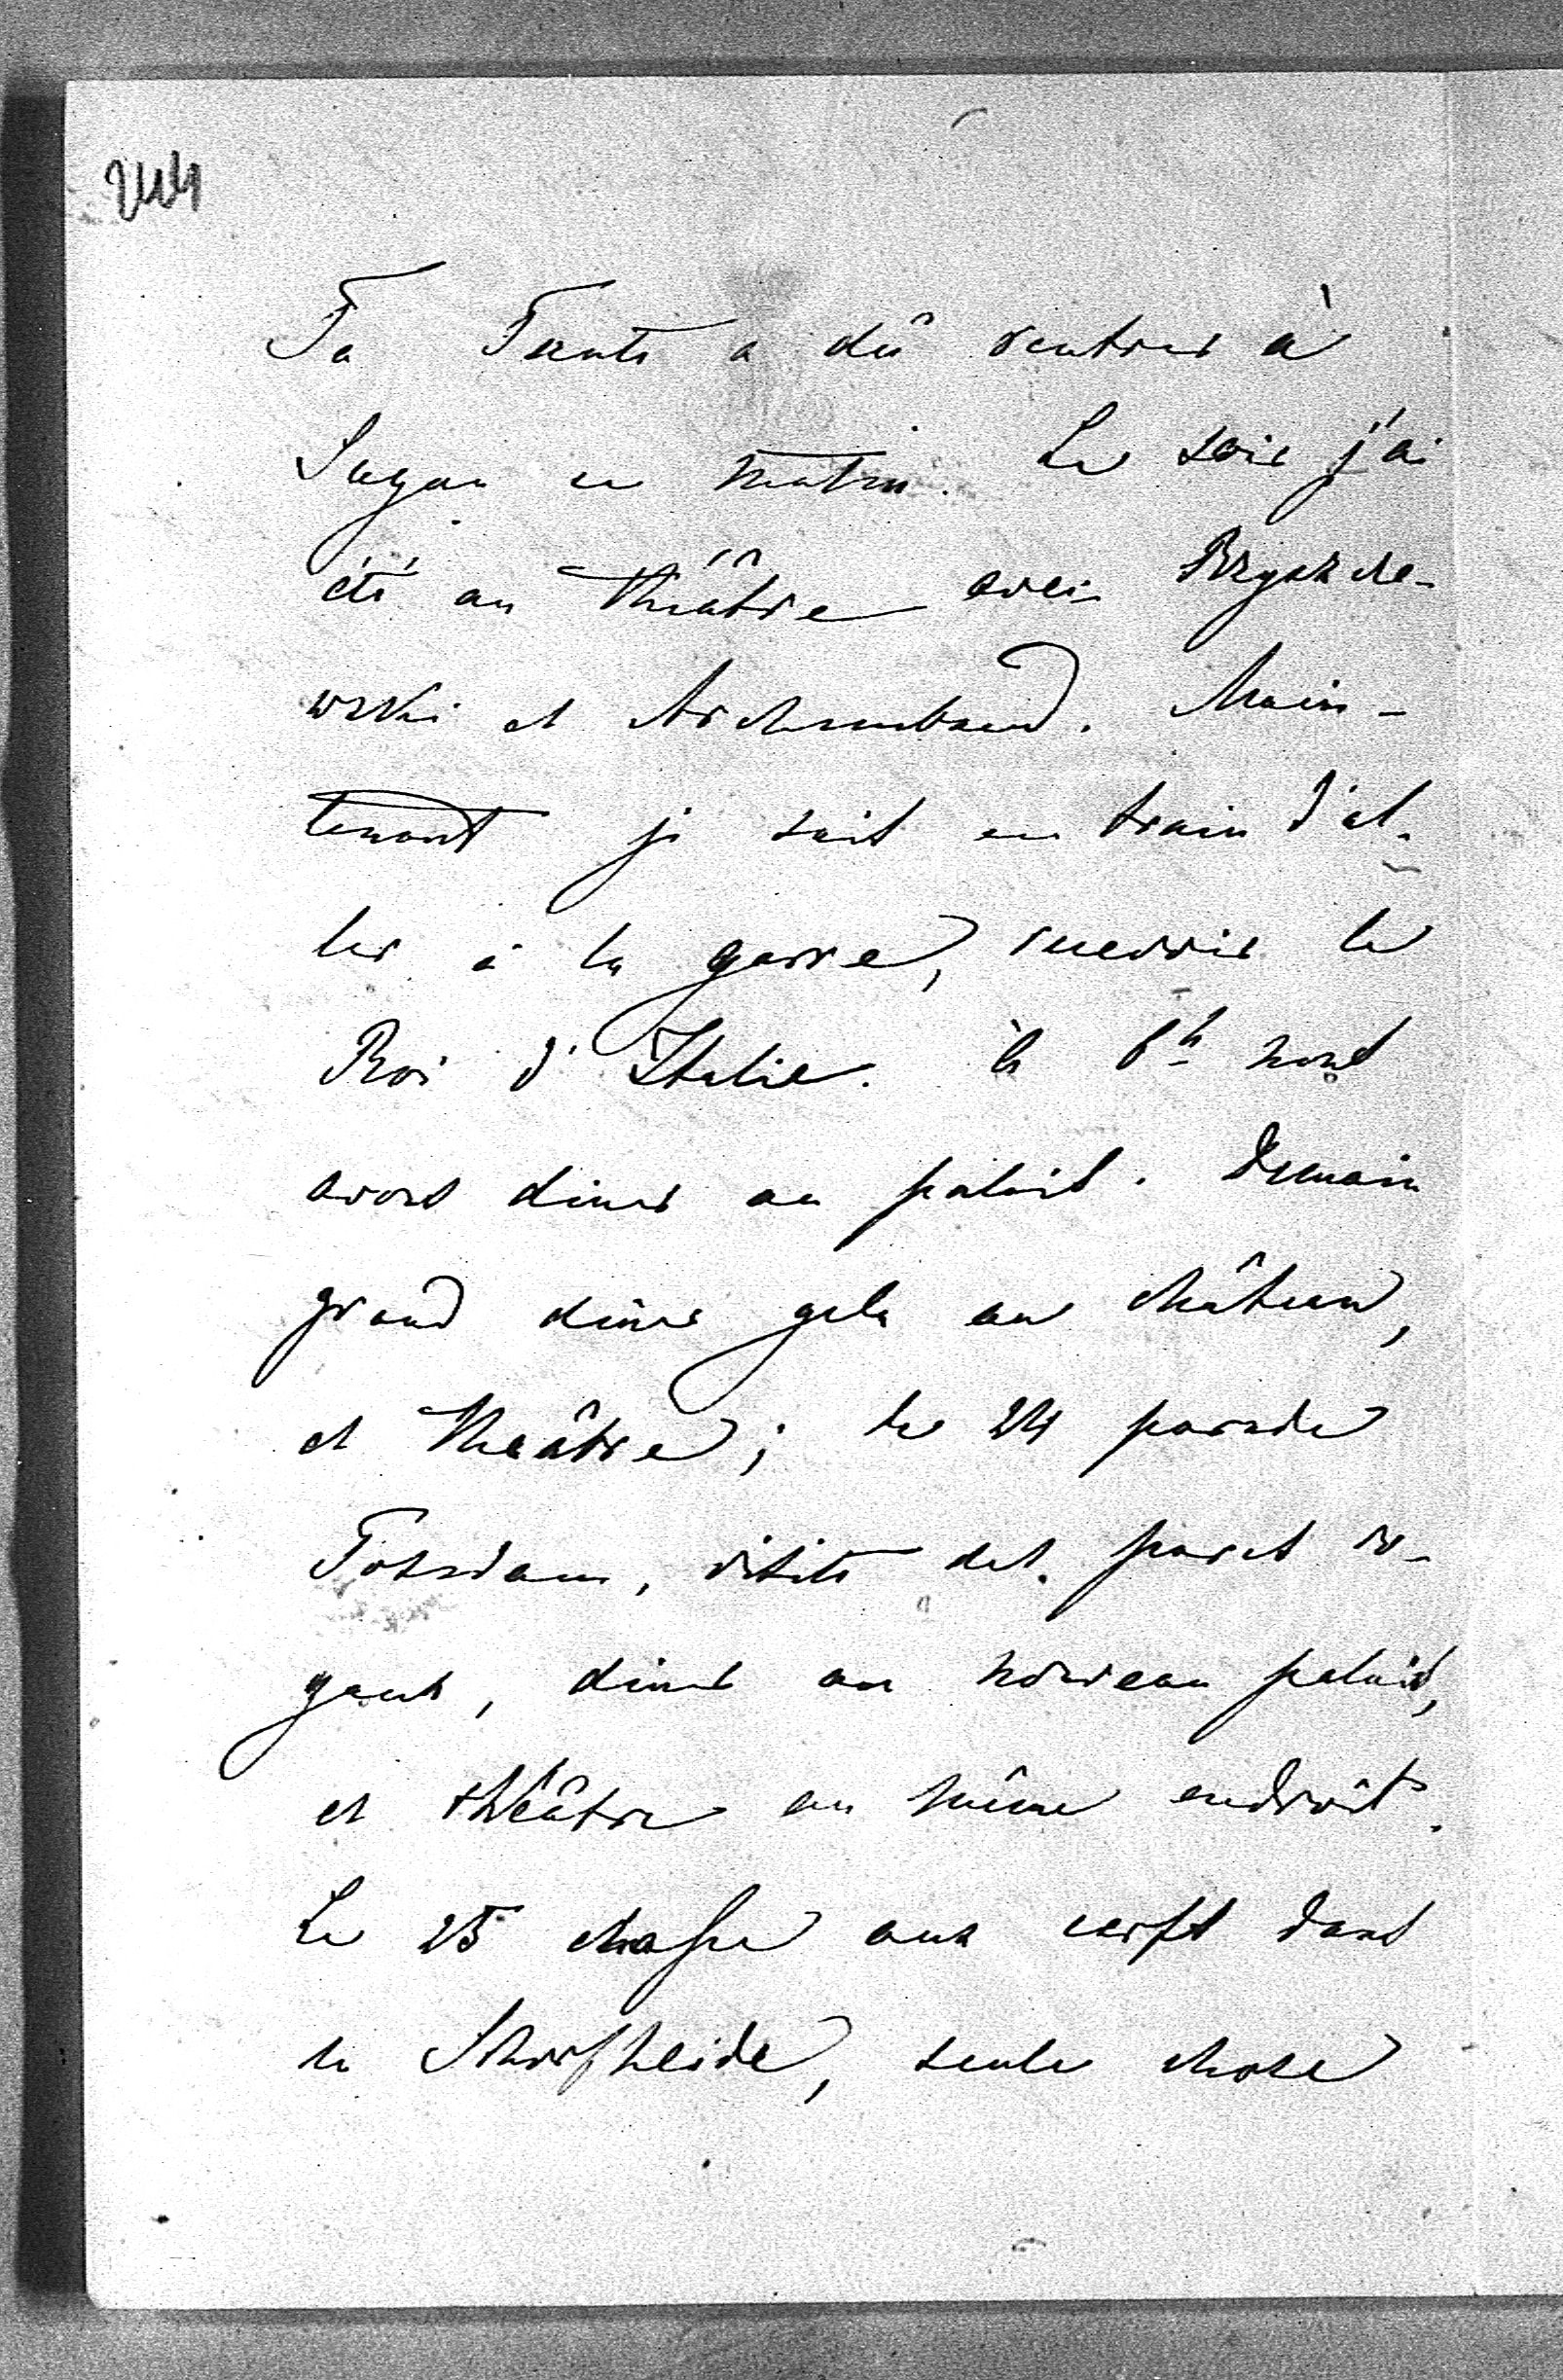 244
Ta Tante a dû rentrer à
Sagan ce matin. Le soir j'ai
été au Théâtre avec Bryszcze-
wski et Archambaud. Main-
tenant je suis en train d'al-
ler à la garre, recevoir le
Roi d'Italie. à 6h nous
avons diner au palais. Demain
grand diner gala au château,
et Théâtre; le 24 parade
Potsdam, visite des parcs ro-
yaux, diner au nouveau palais,
et théâtre au même endroit.
Le 25 chasse aux cerfs dans
la Schorfheide, seule chose